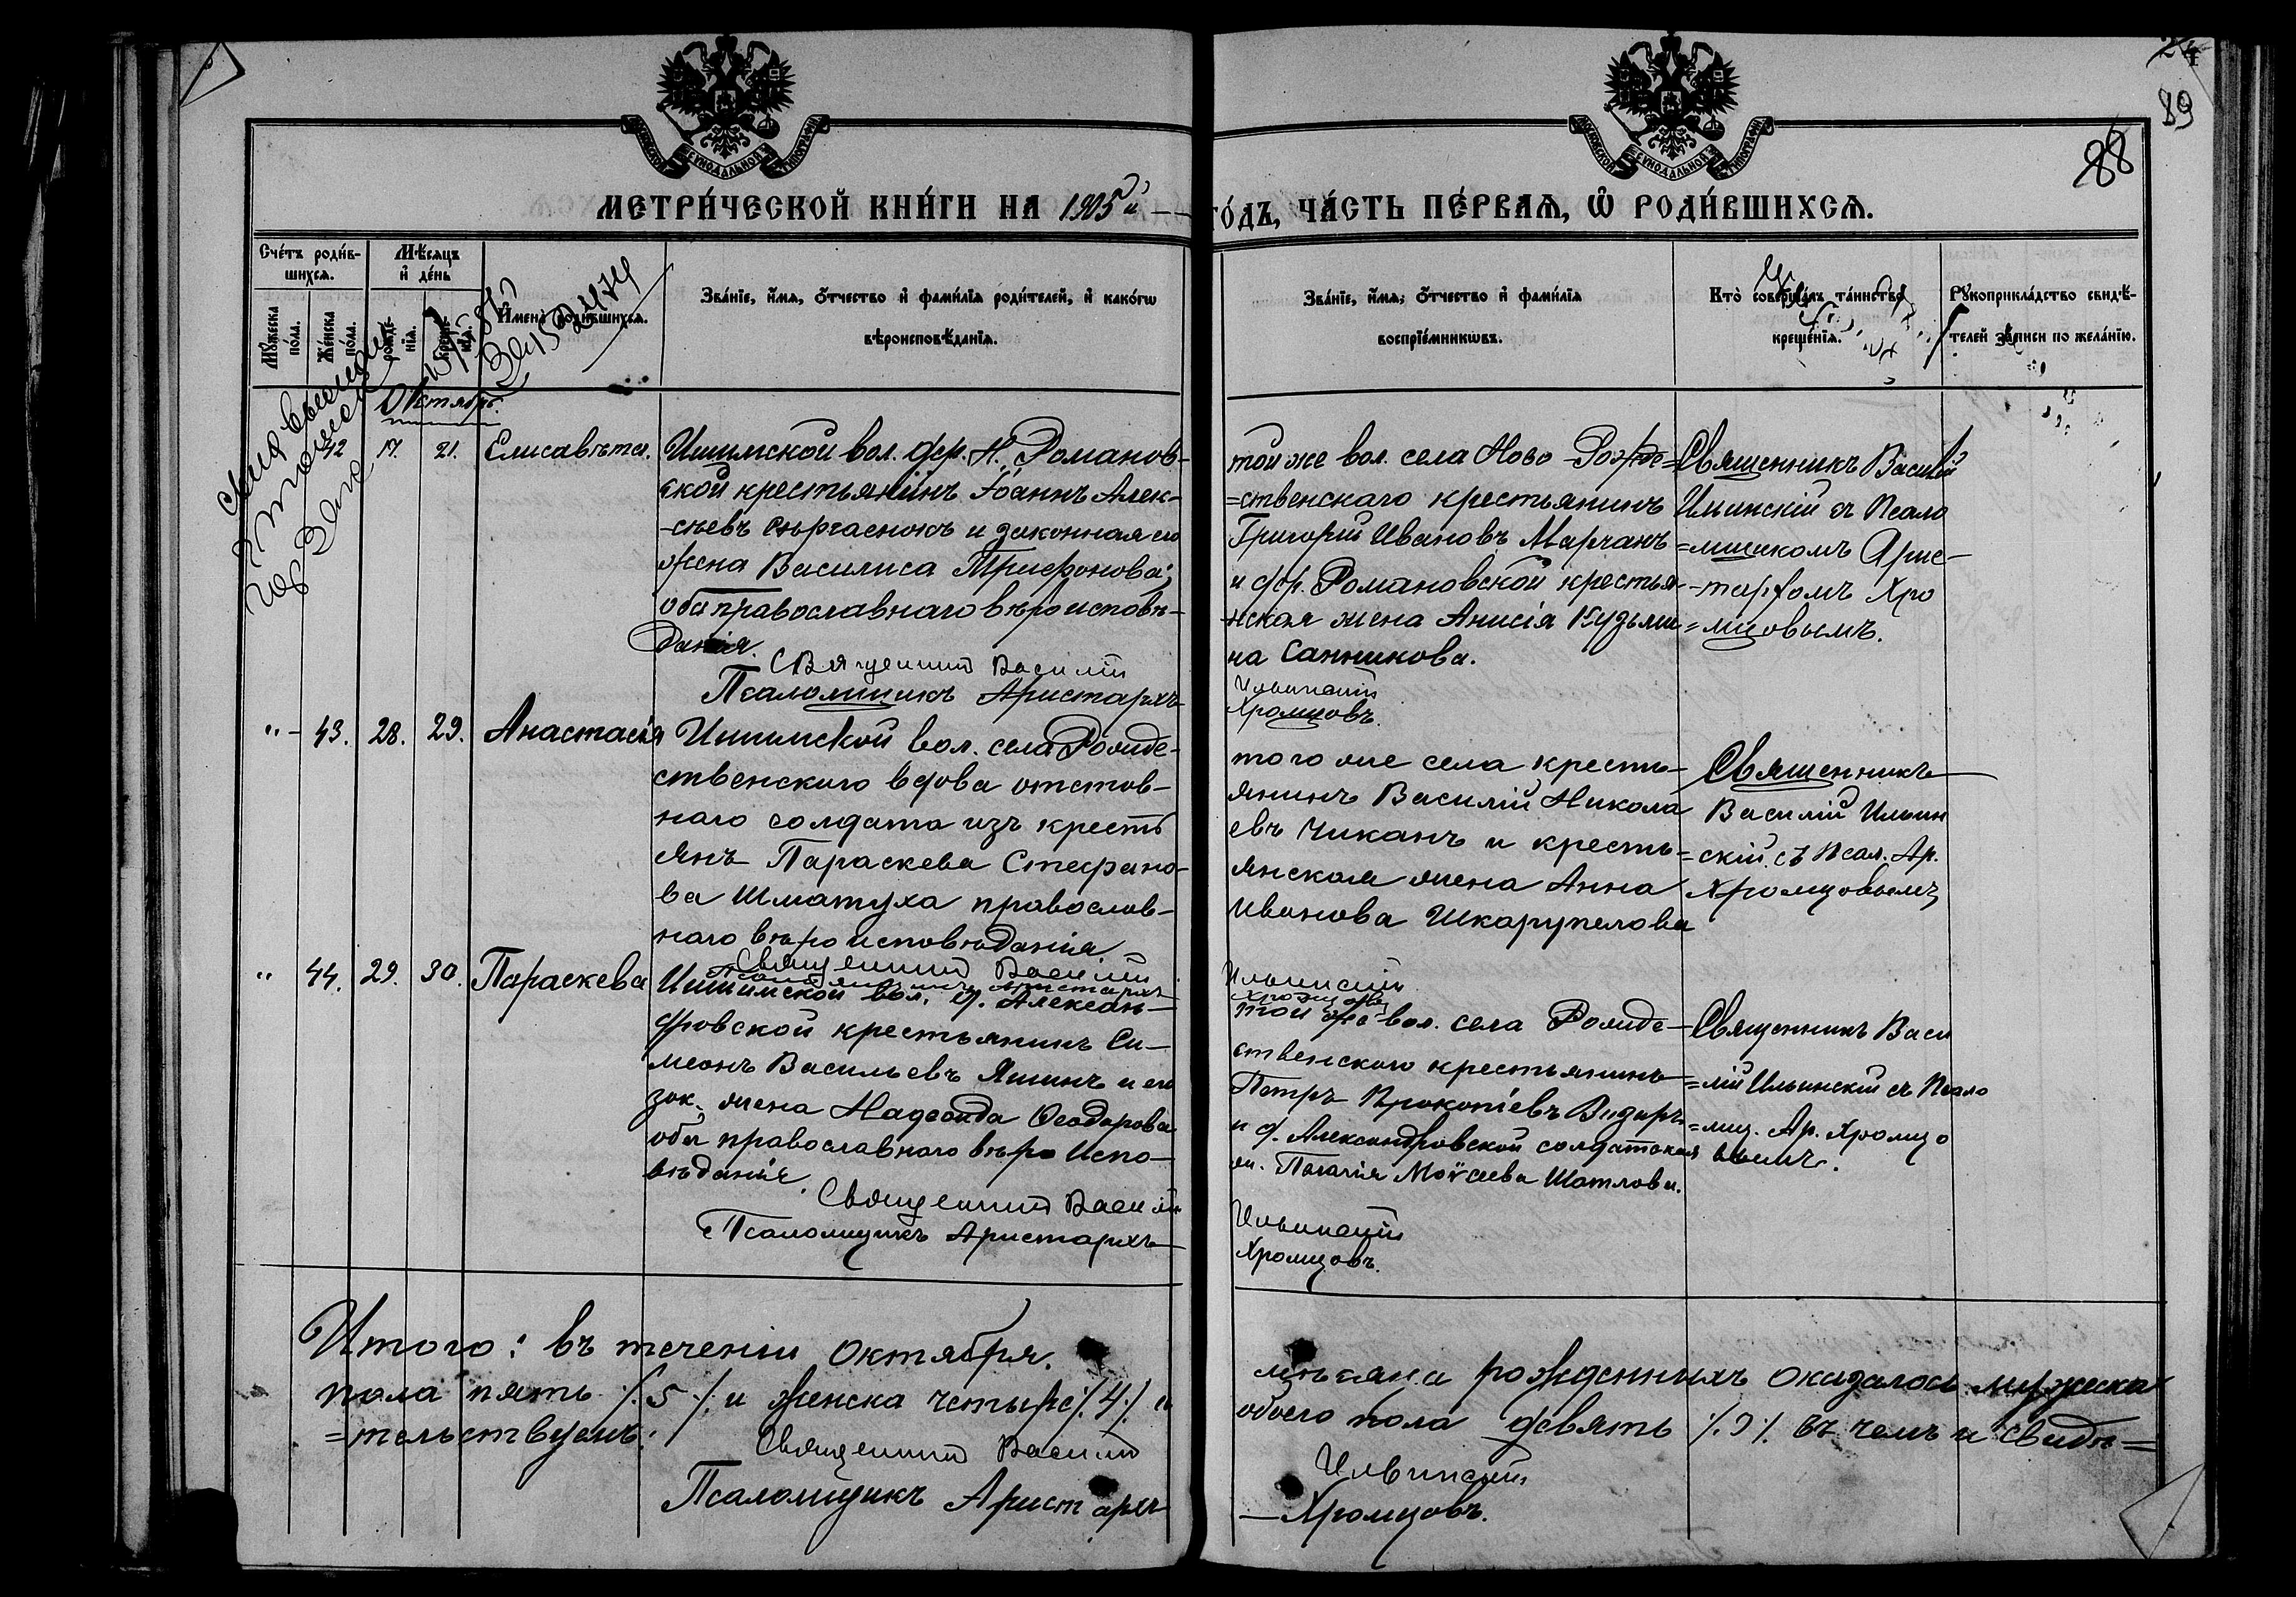 24
89
88
МЕТРИ́ЧЕСКОЙ КНИ́ГИ НА 1905й ГО́ДЪ, ЧА́СТЬ ПЕ́РВАѦ, Ѡ҆ РОДИ́ВШИХСѦ.
Сче́тъ роди́в-
шихсѧ.
Мꙋ́жеска по́ла.
Же́нска по́ла.
Мѣ́сѧцъ и҆ де́нь
рожде́-
нїѧ.
креще́-
нїѧ.
И҆мена̀ роди́вшихсѧ.
Зва́нїе, и҆́мѧ, ѻ҆́тчество и҆ фами́лїѧ роди́телей, и҆ како́гѡ
вѣроисповѣ́данїѧ.
Зва́нїе, и҆́мѧ, ѻ҆́тчество и҆ фами́лїѧ
воспрїе́мникѡвъ.
Кто̀ соверша́лъ та́инство
креще́нїѧ.
Рꙋкоприкла́дство свидѣ́-
телей за́писи по жела́нїю.
Октябрь.
42 17. 21. Елисавѣта.
Ишимской вол. дер. Н. Романов-
ской крестьянинъ Іоаннъ Алек-
-сѣевъ Сюргаснокъ и законная его
жена Василиса Трифонова,
оба православнаго вѣроисповѣ-
данія.
Священникъ Василій
Псаломщикъ Аристархъ
той же вол. села Ново-Рожде=
=ственскаго крестьянинъ
Григорій Ивановъ Марчанъ
и дер. Романовской крестья-
нская жена Анисія Кузьми
на Санникова.
Ильинскій
Хромцовъ.
Священникъ Василій
Ильинскій съ Псало
=мщикомъ Арис-
-тархомъ Хро
=мцовымъ.
"- 43. 28. 29. Анастасія
Ишимской вол. села Рожде-
ственскаго вдова отстав-
наго солдата изъ кресть
янъ Параскева Стефано-
ва Шматуха православ-
наго вѣроисповѣданія
Священникъ Василій
Псаломщикъ Аристархъ
того же села кресть-
янинъ Василій Никола
евъ Чиканъ и кресть-
янская жена Анна
Иванова Шкарупелова
Ильинскій
Хромцовъ
Священникъ
Василій Ильин
=скій съ Псал. Ар.
Хромцовымъ
" 44. 29. 30. Параскева
Ишимской вол. д. Алексан-
дровской крестьянинъ Си-
меонъ Васильевъ Яшинъ и его
зак. жена Надежда Ѳеодорова
оба православнаго вѣро испо-
вѣданія.
Священникъ Василій
Псаломщикъ Аристархъ
той же вол. села Рожде-
ственскаго крестьянинъ
Петръ Прокопіевъ Видиръ
и д. Александровской солдатская
ж. Пелагія Моѵсеева Шатлова.
Ильинскій
Хромцовъ.
Священникъ Васи
=лій Ильинскій съ Псало
=мщ. Ар. Хромцо
вымъ.
Итого: въ теченіи Октября. мѣсяца рожденныхъ оказалось мужеска
пола пять ./.5./. и женска четыре ./.4./. и обоего пола девять ./.9./. въ чемъ и свидѣ=
=тельствуемъ:
Священникъ Василій Ильинскій
Псаломщикъ Аристархъ Хромцовъ.